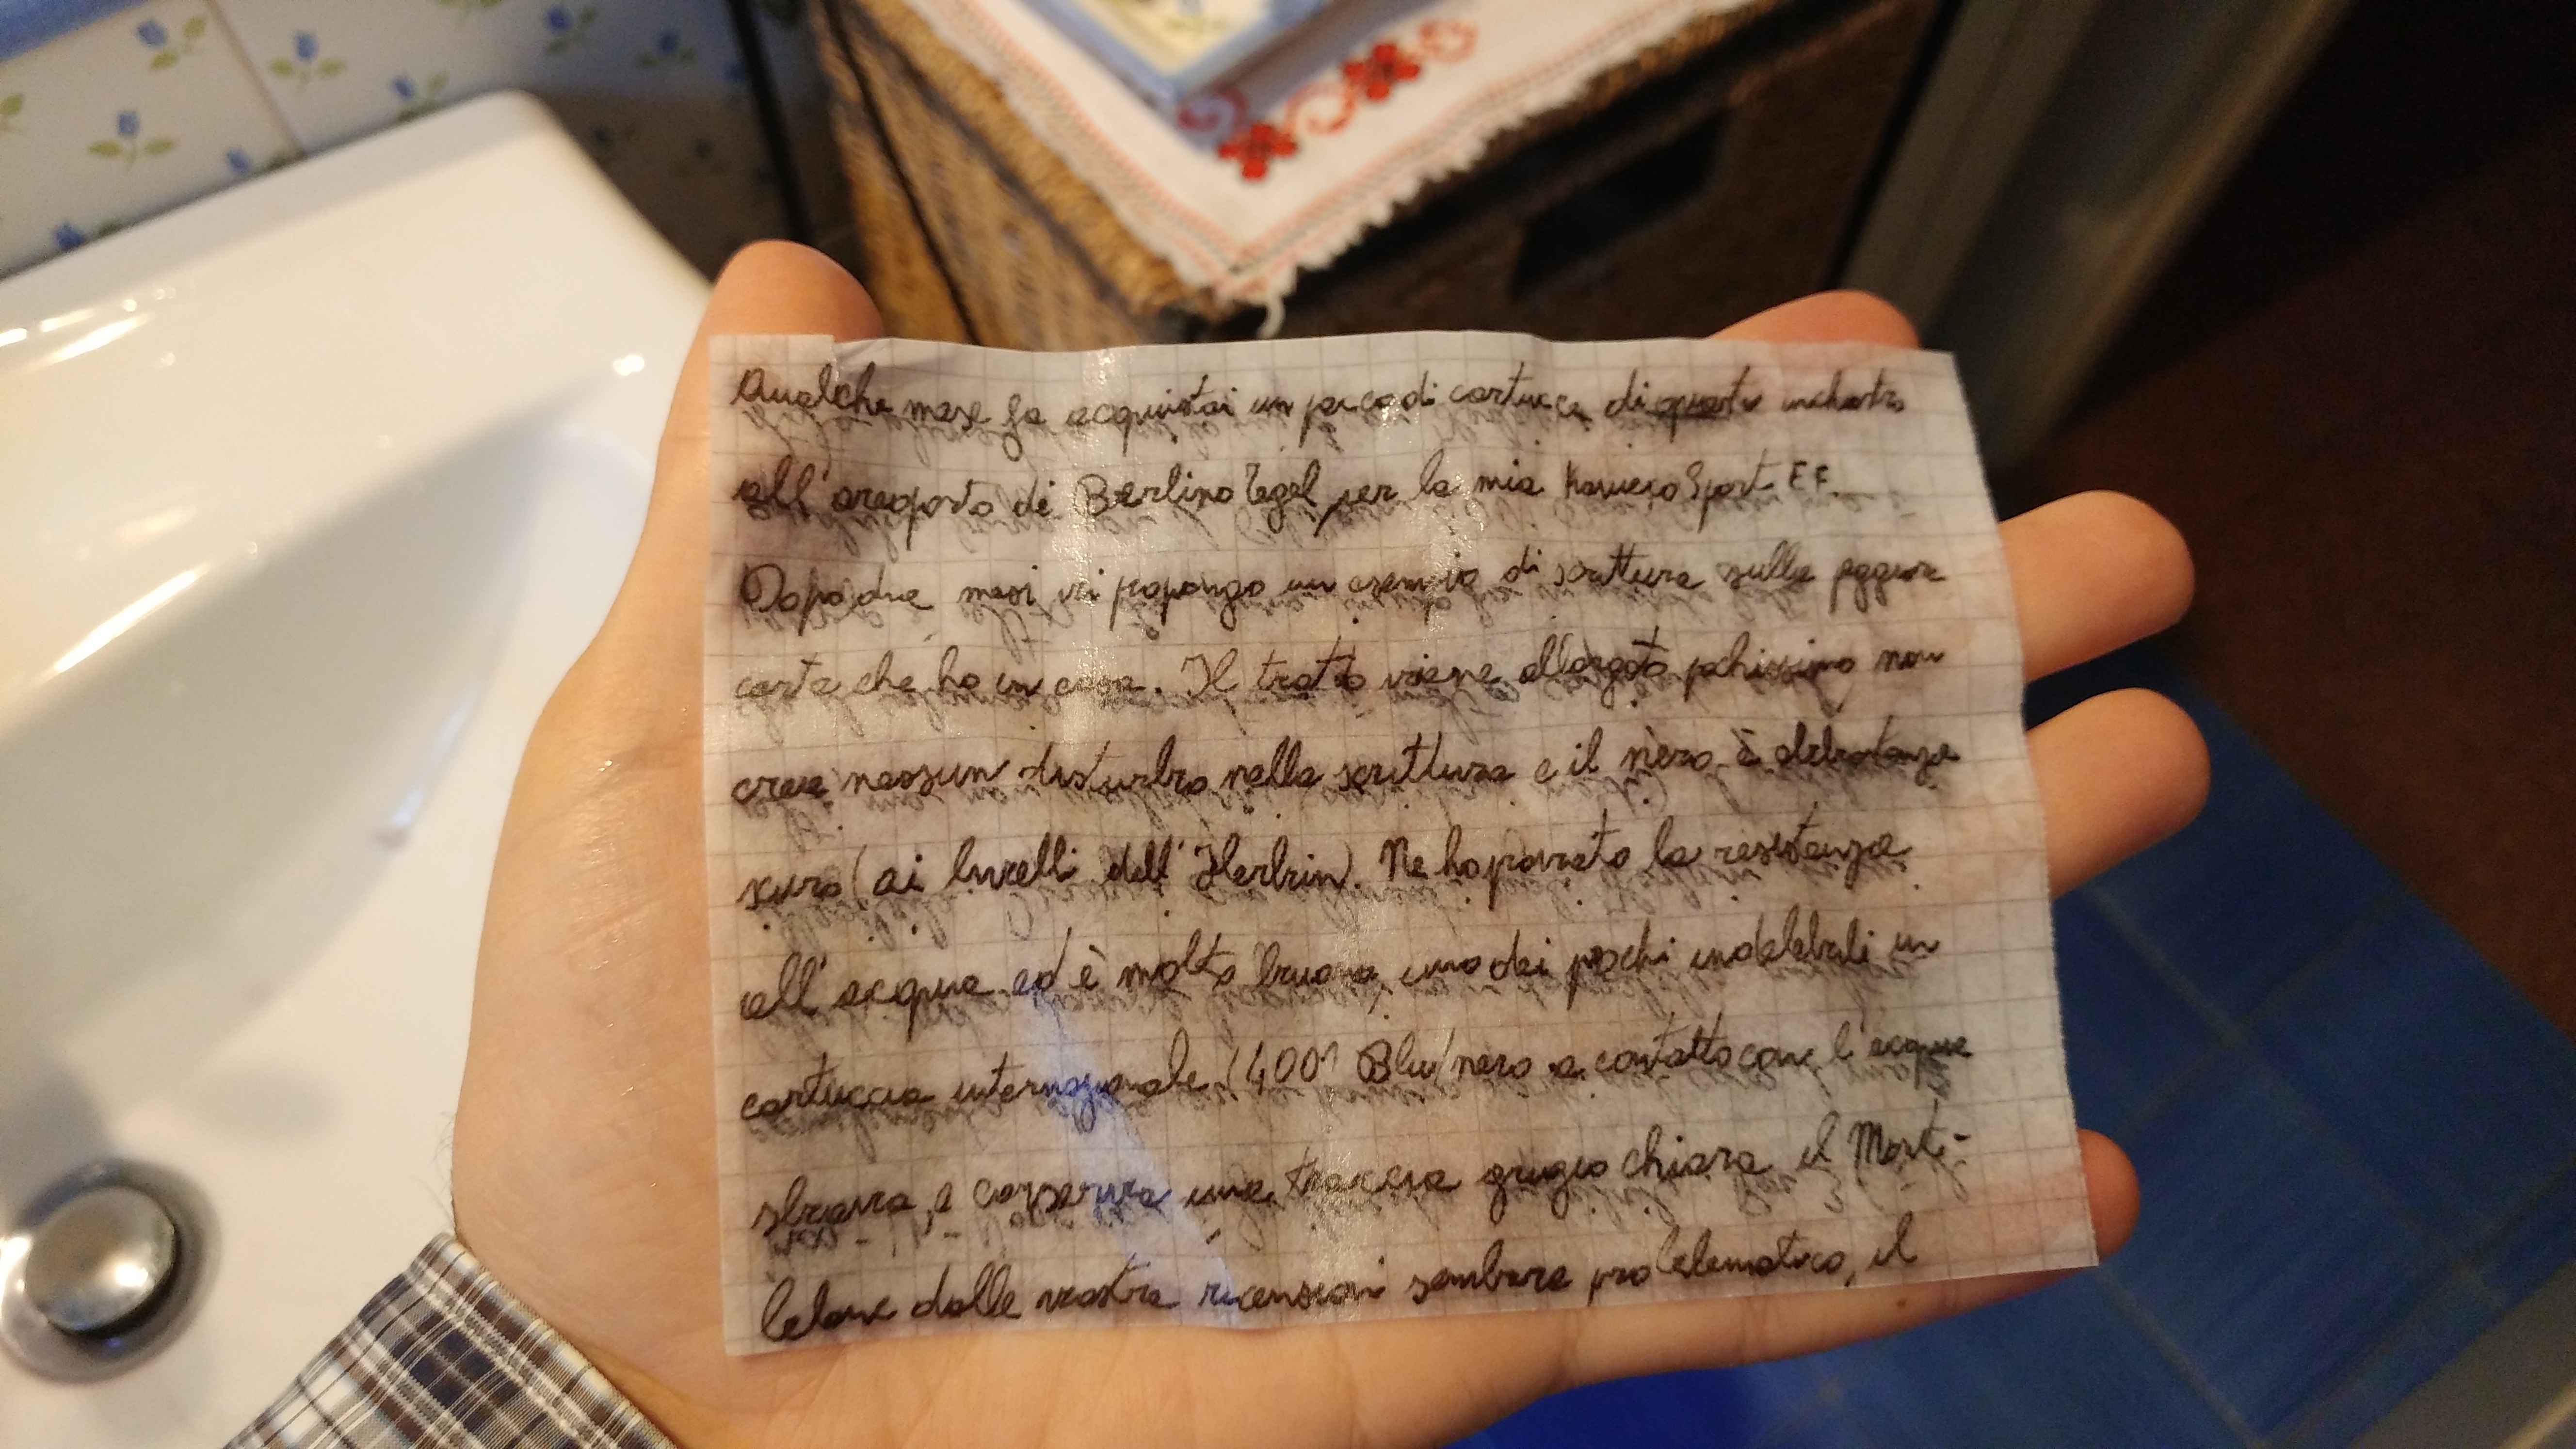 Qualche mese fa acquistai un pacco di cartucce di questo inchiostro
all'areoporto di Berlino Tegel, per la mia Kaweco Sport EF.
Dopo due mesi vi propongo un esempio di scrittura sulla peggiore
carta che ho in casa. Il tratto viene allargato pochissimo non
crea nessun disturbo nella scrittura e il nero è abbastanza
scuro (ai livelli dell'Herbin). Ne ho provato la resistenza
all'acqua ed è molto buona, uno dei pochi indelebili in
cartuccia internazionale (4001 Blu/nero a contatto con l'acqua
sbiava, e conserva una traccia grigio chiara, il Mont-
blanc dalle vostre recensioni sembra problematico, il